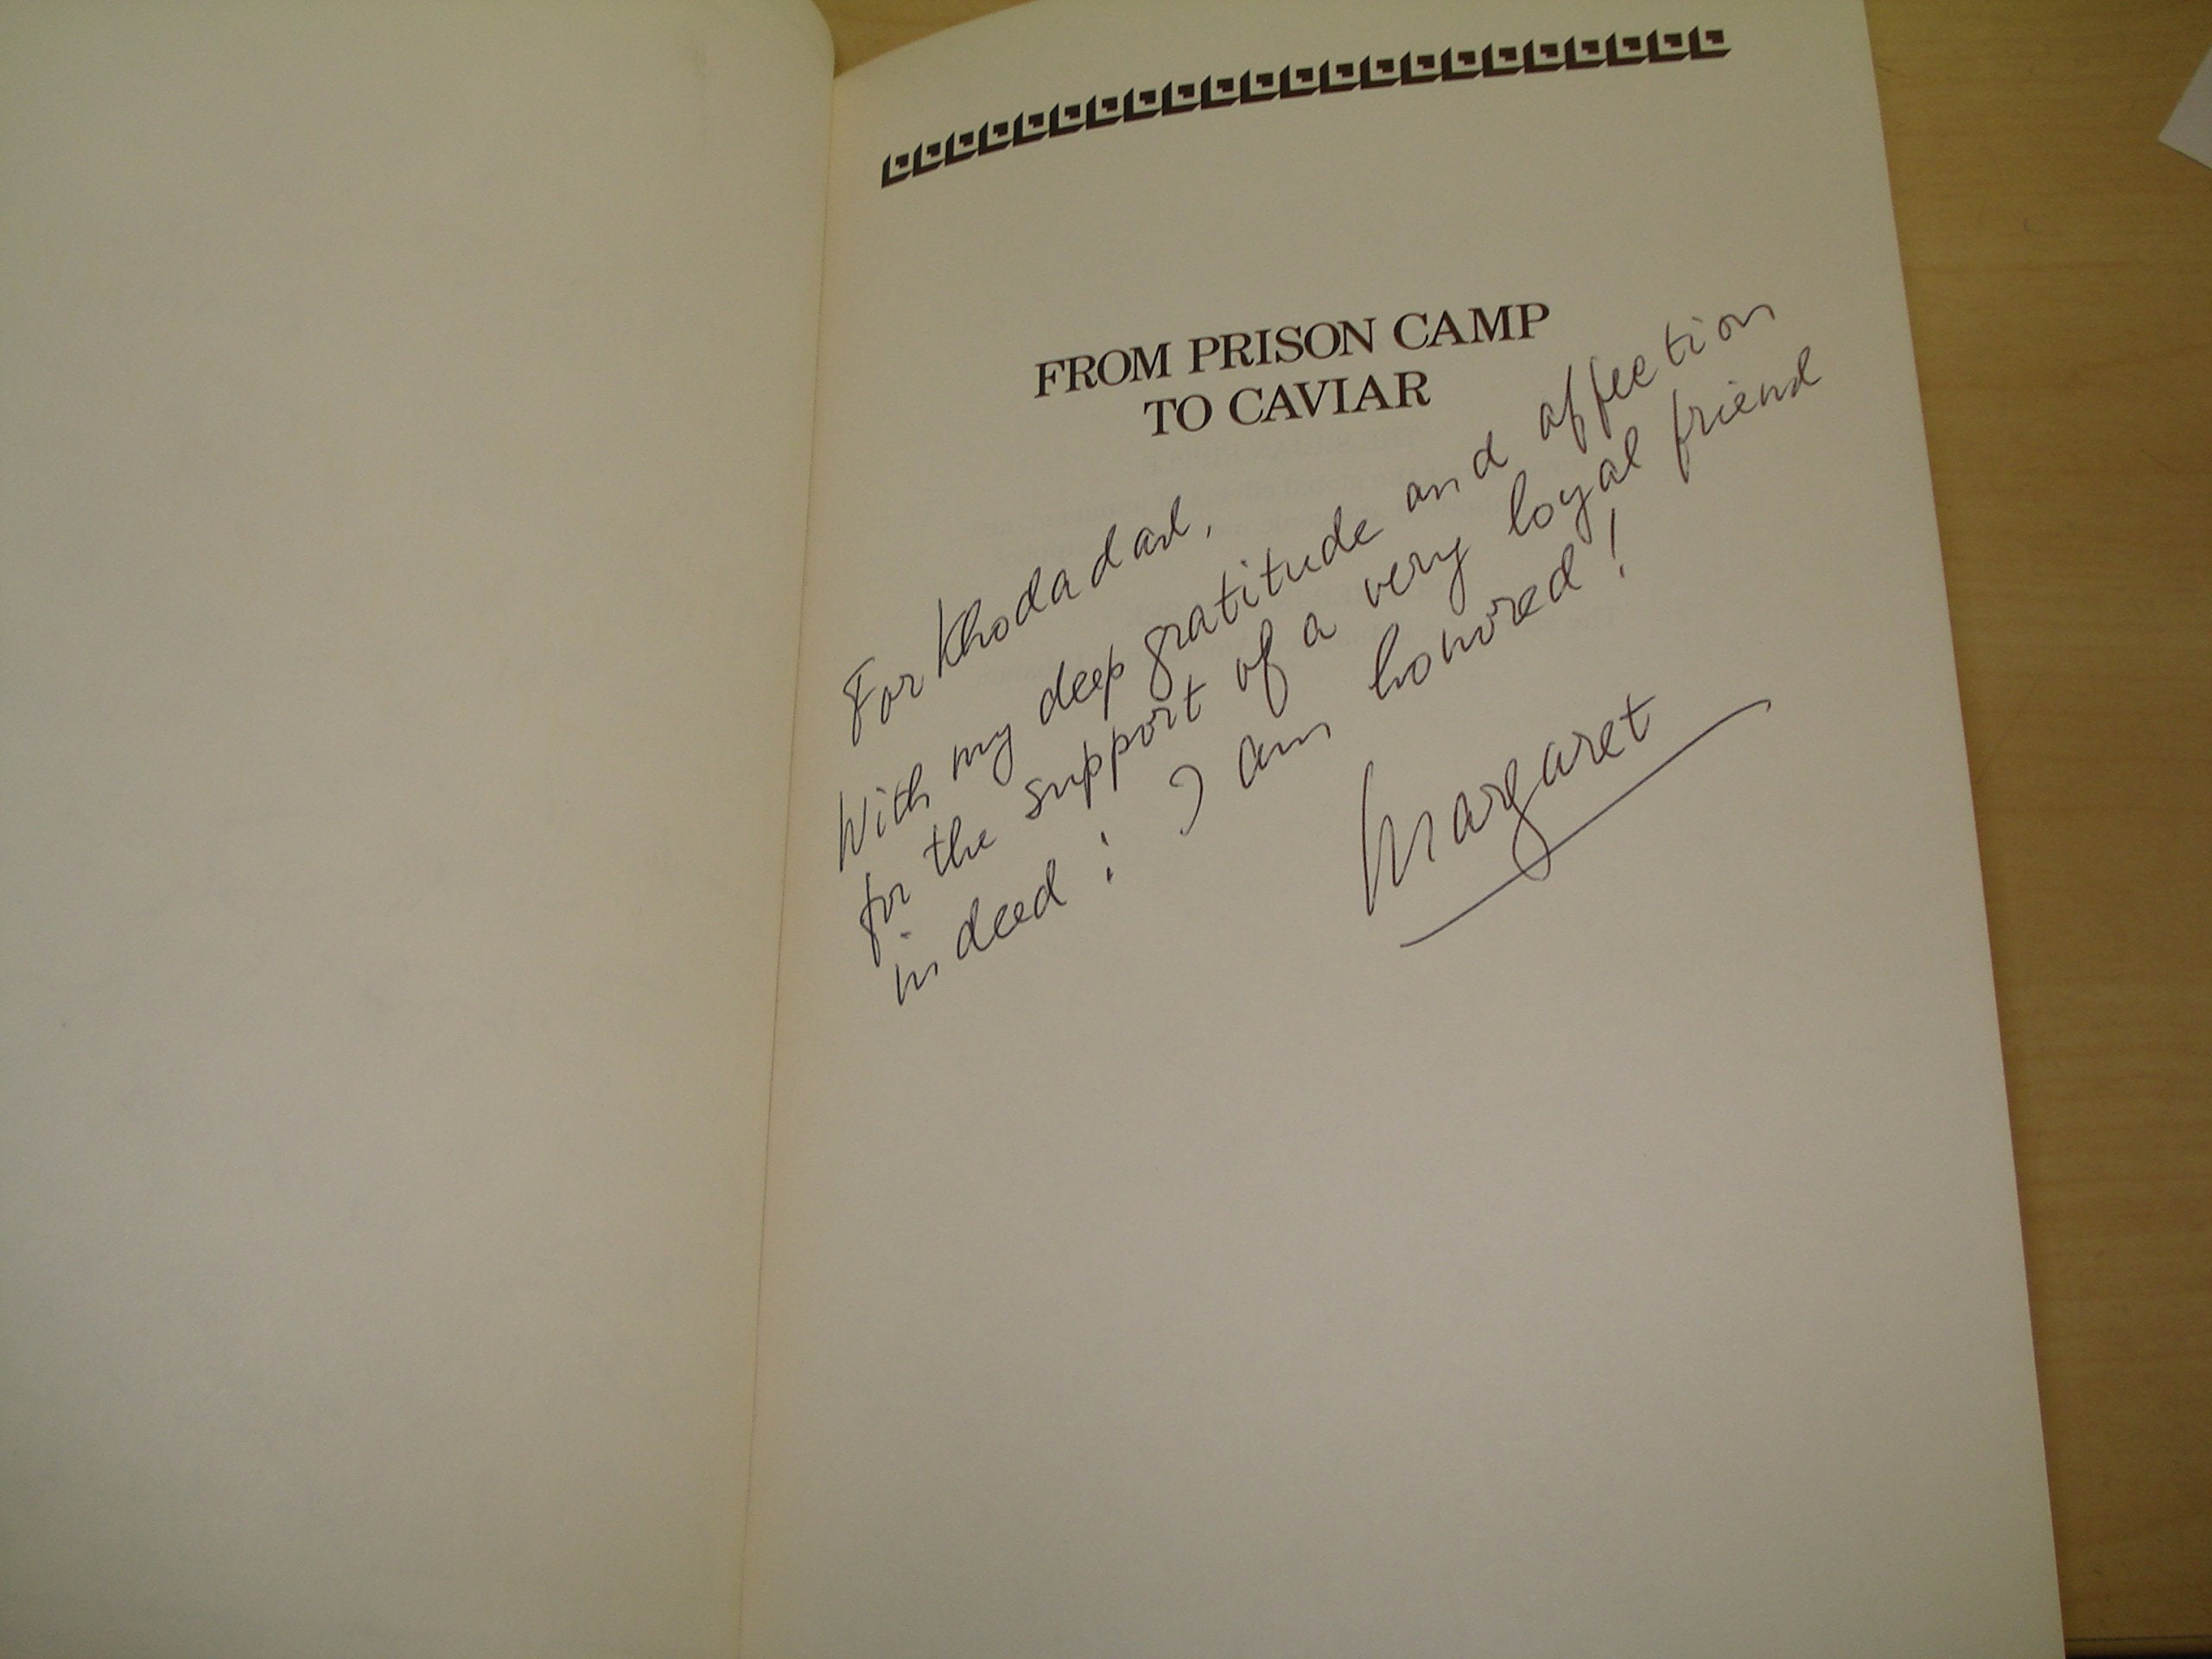 FROM PRISON CAMP
TO CAVIAR
For Khodadad,
With my deep gratitude and affection
for the support of a very loyal friend
indeed! I am honored!
Margaret